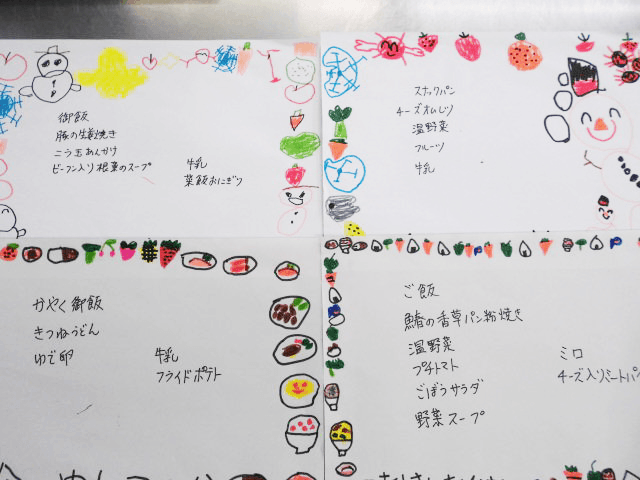 御飯
豚の生姜焼き
ニラ玉あんかけ
ビーフン入り根菜のスープ
牛乳
菜飯おにぎり
スナックパン
チーズオムレツ
温野菜
フルーツ
牛乳
かやく御飯
きつねうどん
ゆで卵
牛乳
フライドポテト
ご飯
鰆の香草パン粉焼き
温野菜
プチトマト
ごぼうサラダ
野菜スープ
ミロ
チーズ入りミートパイ